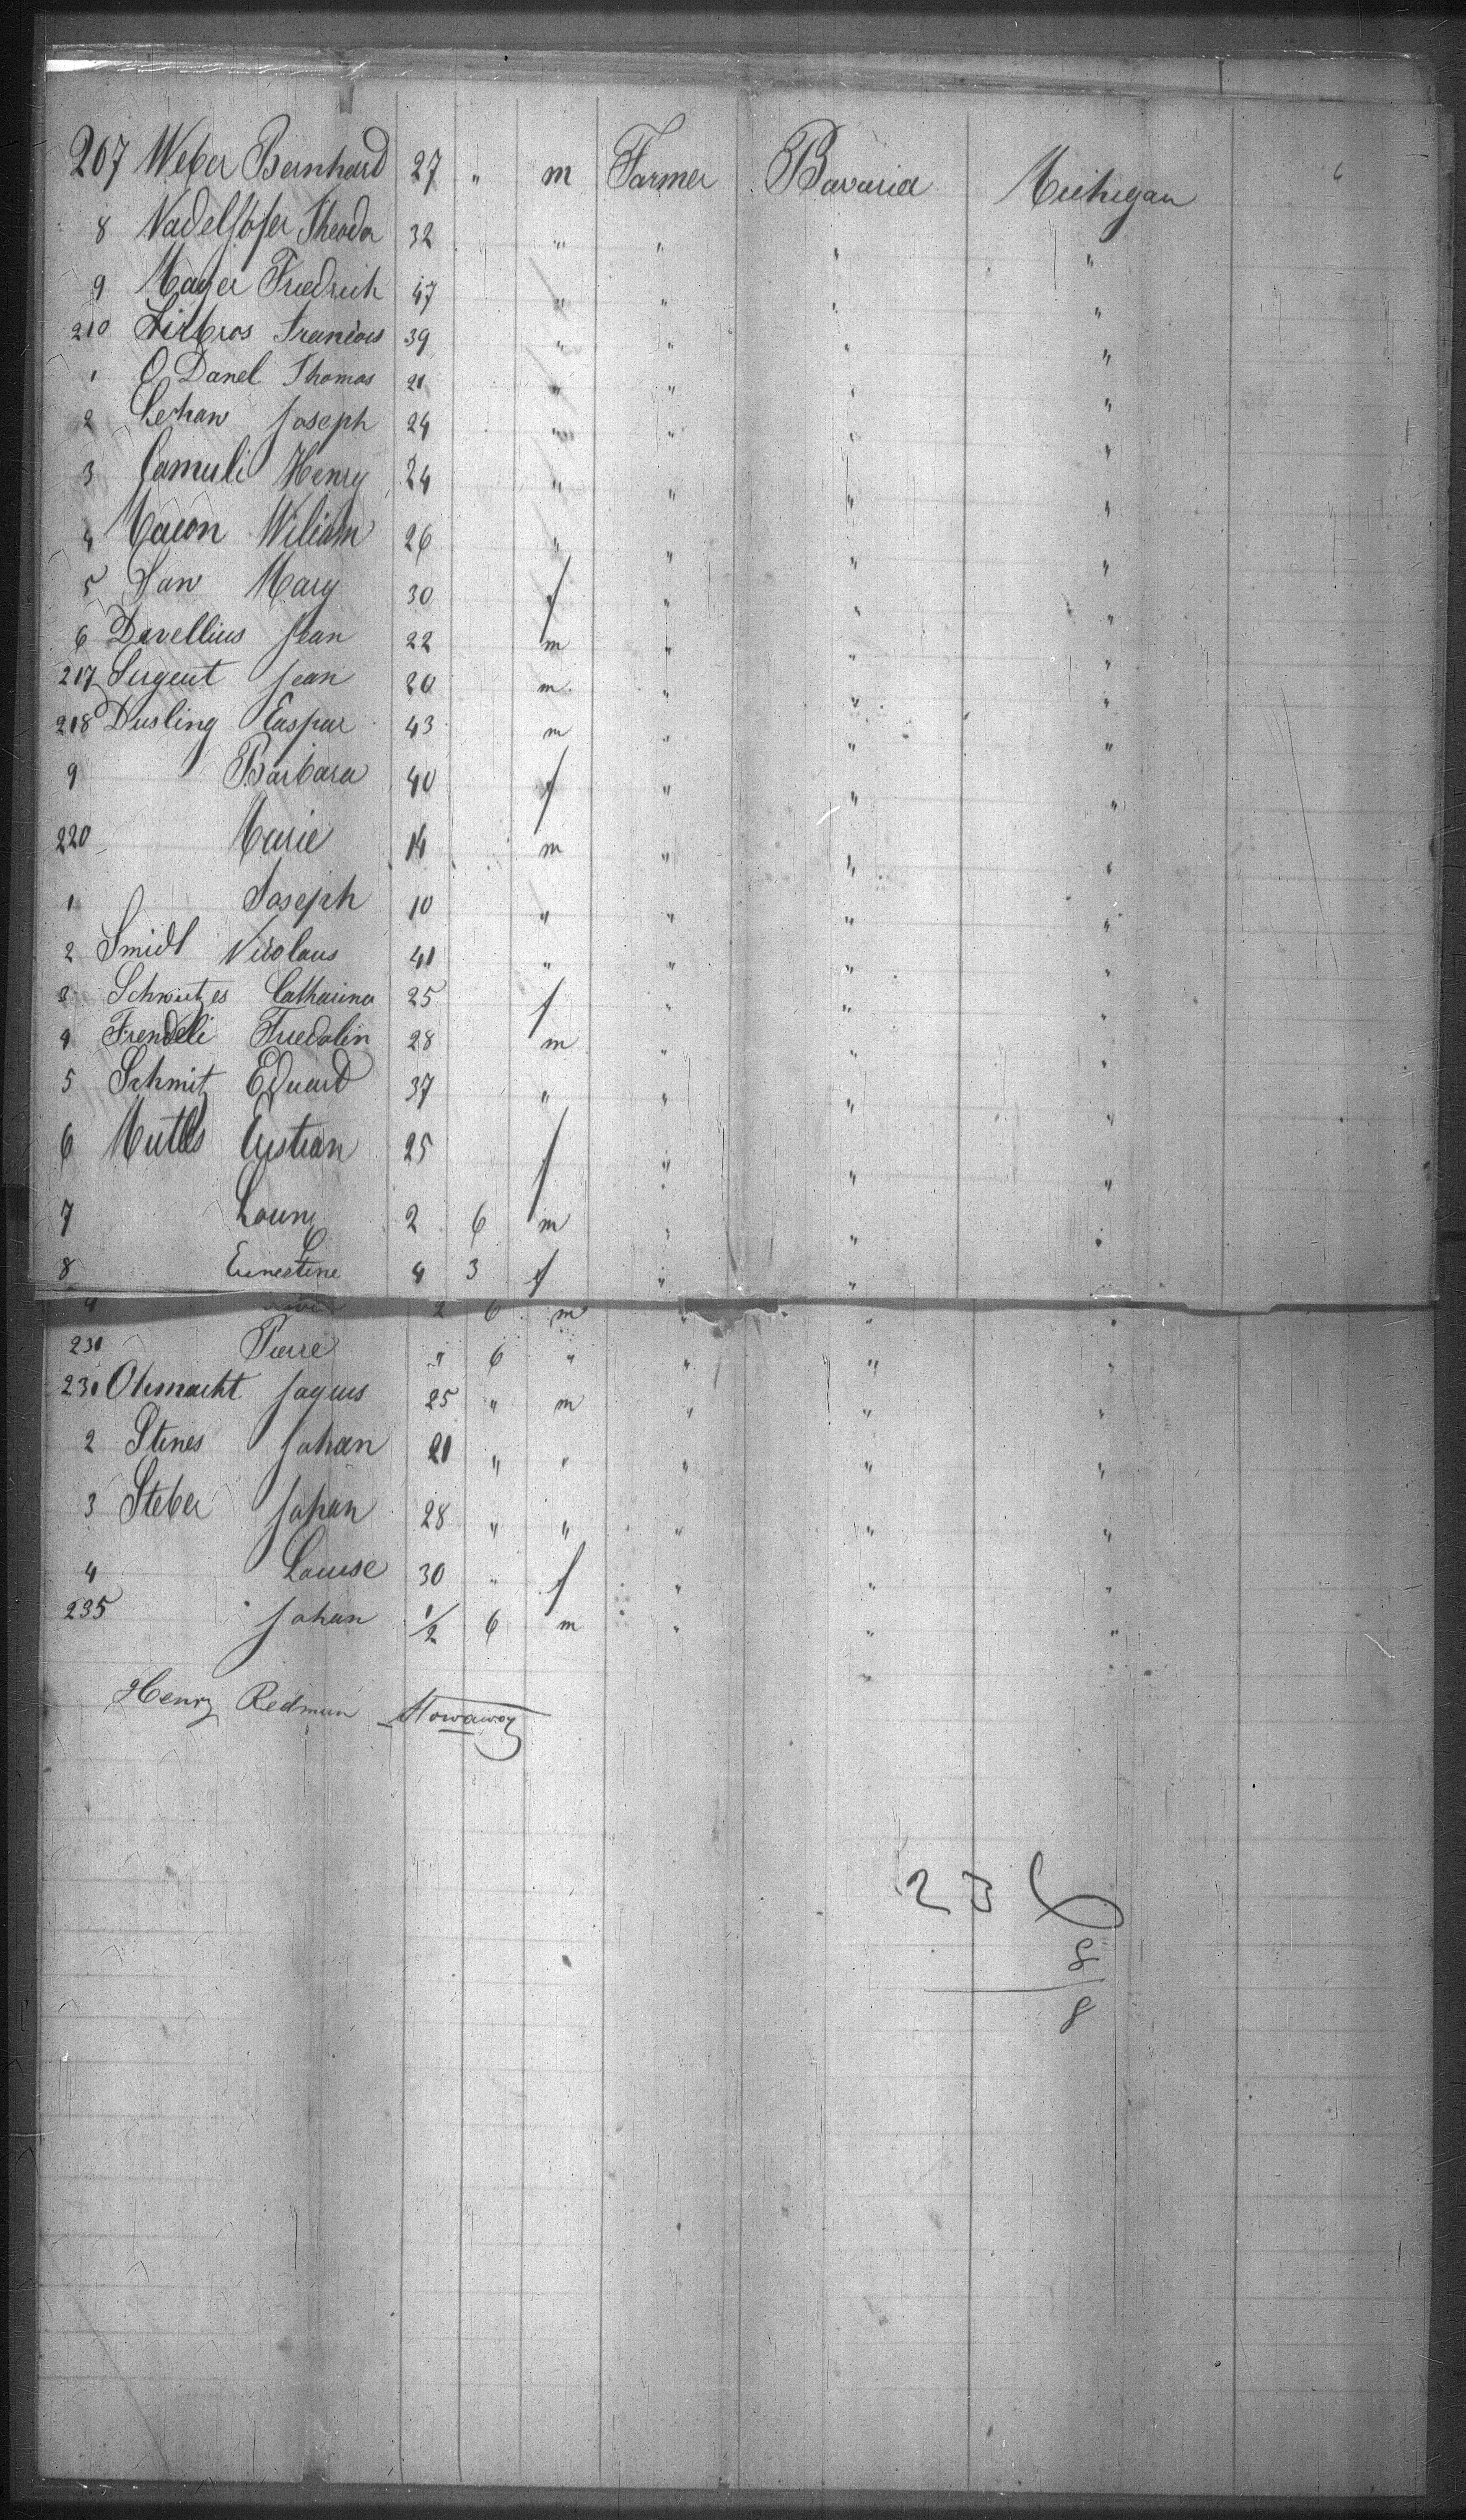 207 Weber Bernhard 27 " m Farmer Bavaria Michigan
8 Nadelhofer Theodor 32 " " " "
9 Mayer Friedrich 47 " " " "
210 Francois 39 " " " "
1 O Danel Thomas 21 " " " "
2 Lehan Joseph 24 " " " "
3 Camuli Henry 24 " " " "
4 Macon Wiliam 26 " " " "
5 San Mary 30 f " " "
6 Davellius Jean 22 m " " "
217 Surgeut Jean 20 m " " "
218 Dusling Caspar 43 m " " "
9 Barbara 40 f " " "
220 Marie 14 m " " "
1 Joseph 10 " " " "
2 Smidt Nicolaus 41 " " " "
3 Catharina 25 f " " "
4 Frendeli Fredolin 28 m " " "
5 Schmitz Eduard 37 " " " "
6 Cristian 25 f " " "
7 2 6 m " " "
8 Ernestine 4 3 f " " "
9 2 6 m " " "
230 Pierre " 6 " " " "
231 Ohmacht Jaques 25 " m " " "
2 Stenes Johan 21 " " " " "
3 Steber Johan 28 " " " " "
4 Louise 30 " f " " "
235 Johan 1/2 6 m " " "
Henry Redman Stowaway
236
8
8